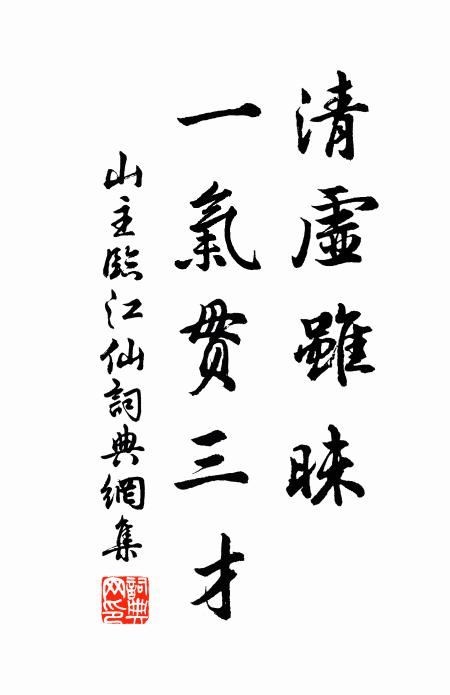 清虛雖昧
一氣貫三才
山主臨江仙詞典網集
詞典網印